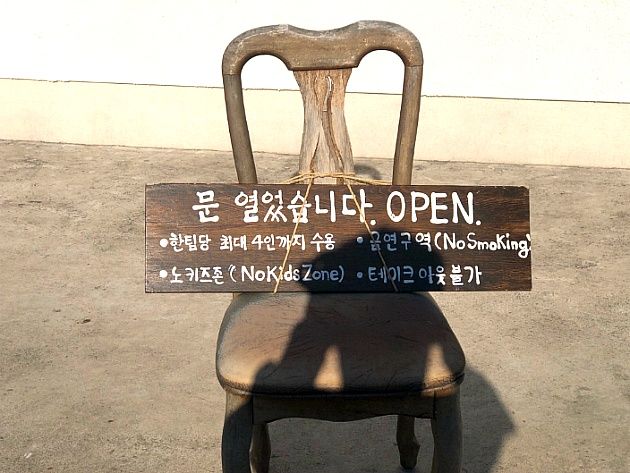 문 열었습니다. OPEN.
•한팀당 최대 4인까지 수용 •금연구역(NoSmoKing)
•노키즈존 (NoKidsZone) •테이크아웃불가